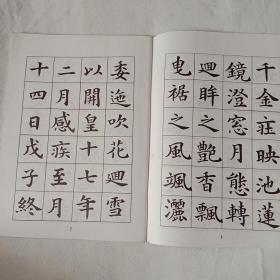 千金庄映池蓮
鏡澄窓月態轉
迴眸之艷香飄
曳裾之風颯灑
委迤吹花迴雪
以開皇十七年
二月感疾至月
十四日戊子終